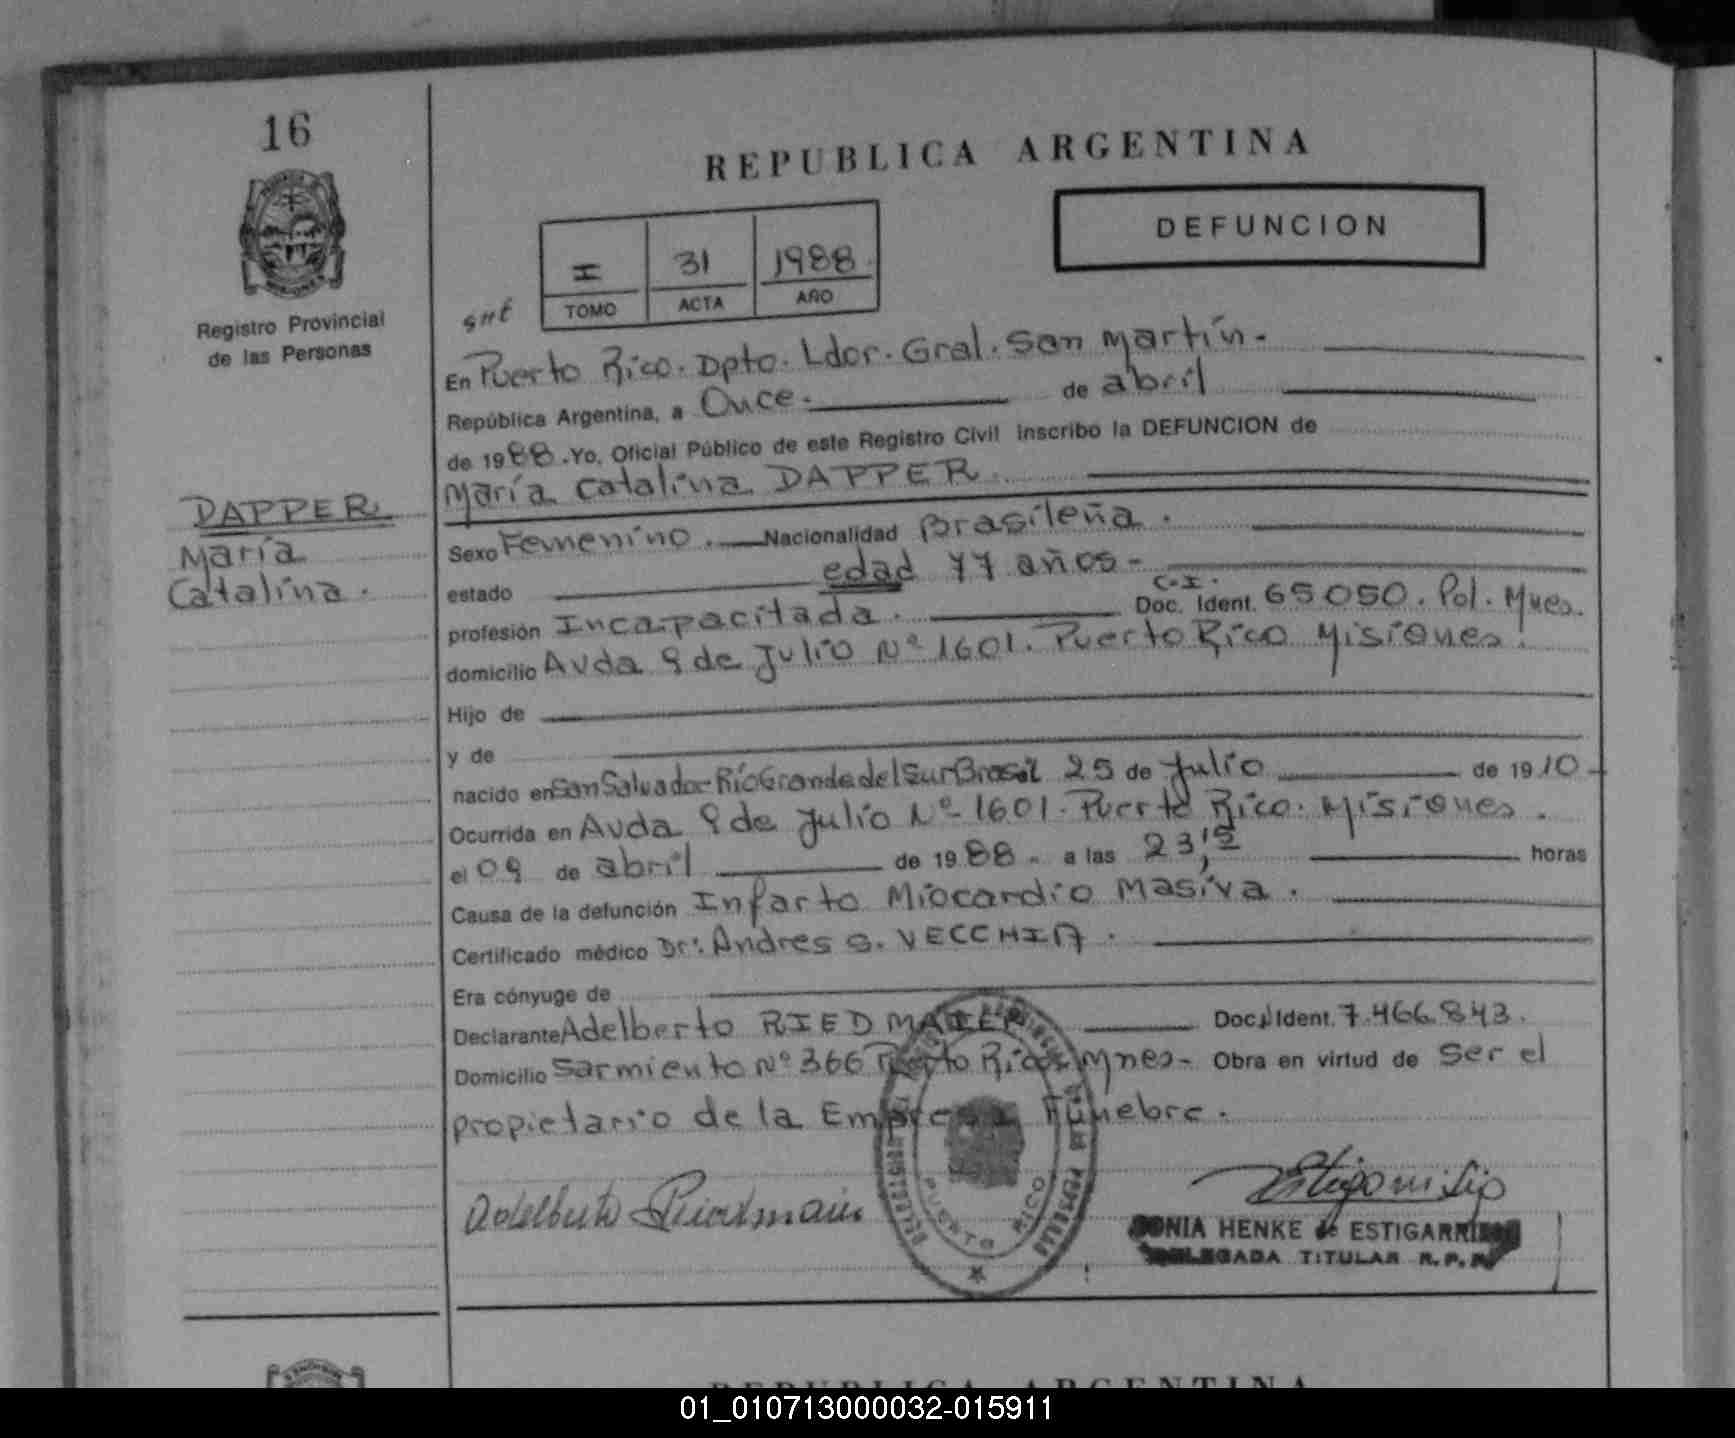 16
REPUBLICA ARGENTINA
DEFUNCION
I 31 1988
TOMO ACTA AÑO
Registro Provincial
de las Personas
En Puerto Rico. Dpto. Ldor. Gral. San Martín.-
República Argentina, a Once. de abril
de 1988. Yo, Oficial Público de este Registro Civil inscribo la DEFUNCION de
María Catalina DAPPER.
DAPPER.
María
Catalina.
Sexo Femenino. Nacionalidad Brasileña.
estado edad 77 años-
profesión Incapacitada. Doc. Ident. C.I. 65050. Pol. Mnes.
domicilio Avda 9 de Julio Nº 1601. Puerto Rico Misiones.
Hijo de
y de
nacido en San Salvador-Río Grande del Sur Brasil 25 de Julio de 1910-
Ocurrida en Avda 9 de Julio Nº 1601. Puerto Rico. Misiones.
el 09 de abril de 1988. a las 23,15 horas
Causa de la defunción Infarto Miocardio Masiva.
Certificado médico Dr. Andres S. VECCHIA.
Era cónyuge de
Declarante Adelberto RIEDMAIER Doc. Ident. 7.466.843.
Domicilio Sarmiento Nº 366 Puerto Rico. Mnes- Obra en virtud de Ser el
propietario de la Empresa Fúnebre.
Adelberto Riedmaier
PUERTO RICO
SONIA HENKE de ESTIGARRIBIA
DELEGADA TITULAR R.P.P.
REPUBLICA ARGENTINA
01_010713000032-015911